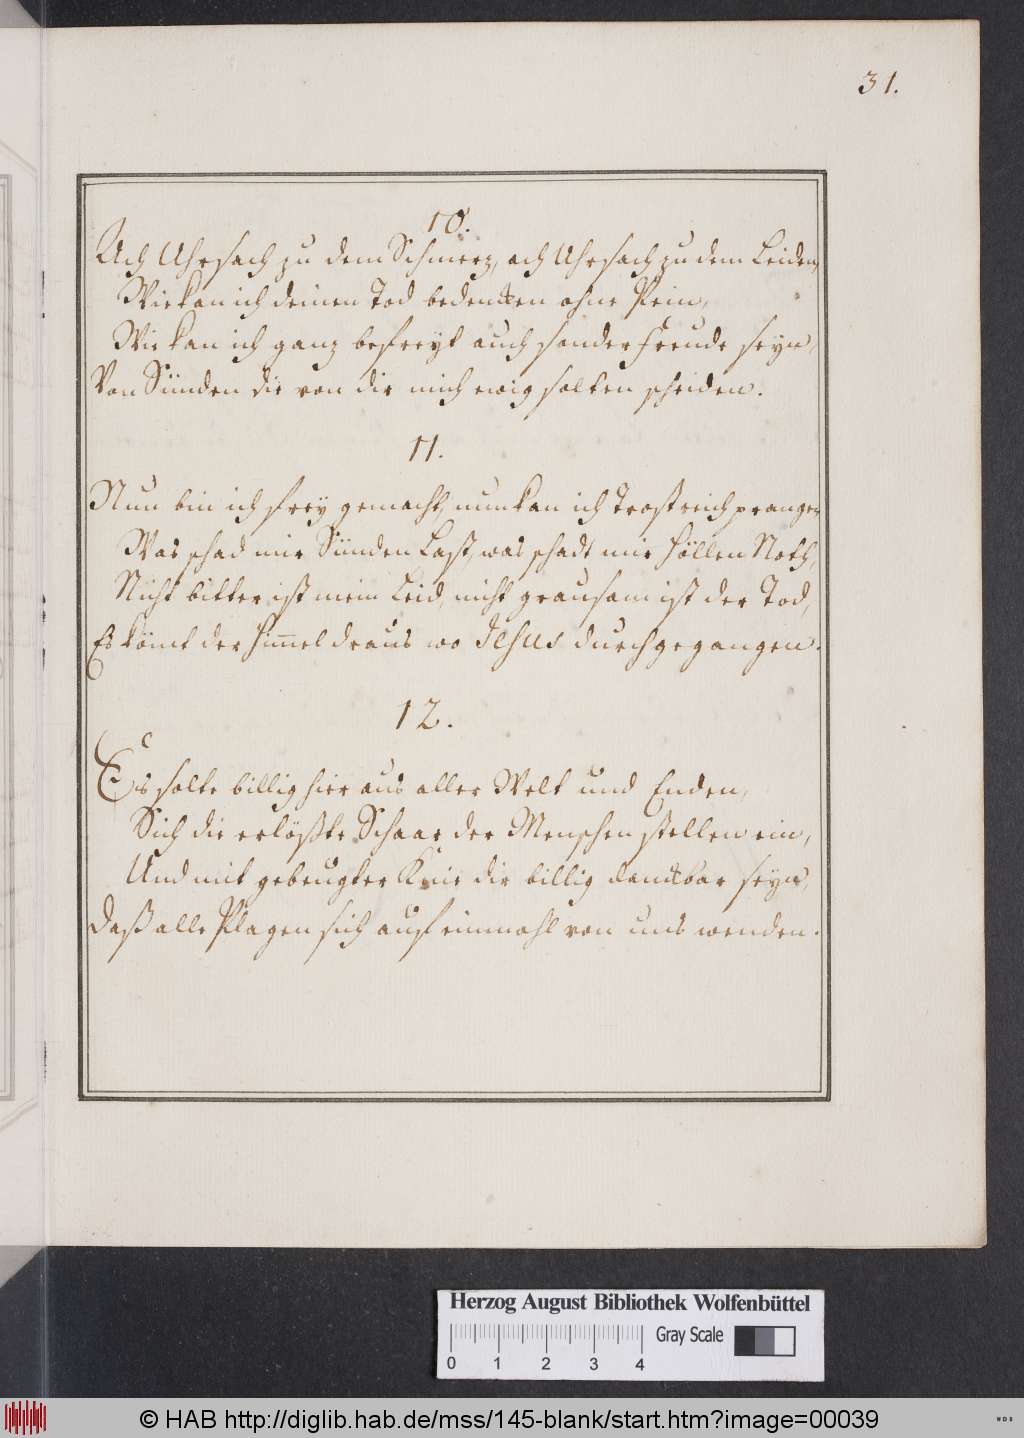 31.
10.
Ach Uhrsach zu dem Schmerz, ach Uhrsach zu dem Leiden,
Wie kan ich deinen Tod bedencken ohne Pein,
Wie kan ich ganz befreyt auch sonder Freude seyn,
Von Sünden die von dir mich ewig solten scheiden.
11.
Nun bin ich frey gemacht, nun kan ich Trostreich prangen
Was schad mir Sünden Last, was schadt mir Höllen Noth,
Nicht bitter ist mein Leid, nicht grausam ist der Tod,
Es kömt der Himmel draus wo Jesus durchgegangen.
12.
Es solte billig hier aus aller Welt und Enden,
Sich die erlößte Schaar der Menschen stellen ein,
Und mit gebeugter Knie dir billig danckbar seyn,
Daß alle Plagen sich auf einmahl von uns wenden.
Herzog August Bibliothek Wolfenbüttel
Gray Scale
0 1 2 3 4
© HAB http://diglib.hab.de/mss/145-blank/start.htm?image=00039